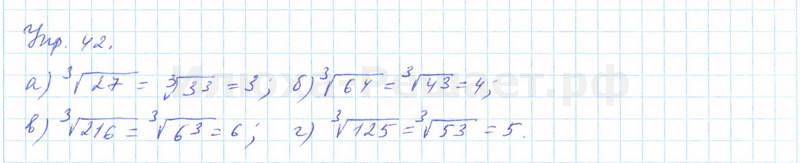 Упр. 42.
а) ³√27 = ³√3³ = 3; б) ³√64 = ³√4³ = 4;
в) ³√216 = ³√6³ = 6; г) ³√125 = ³√5³ = 5.